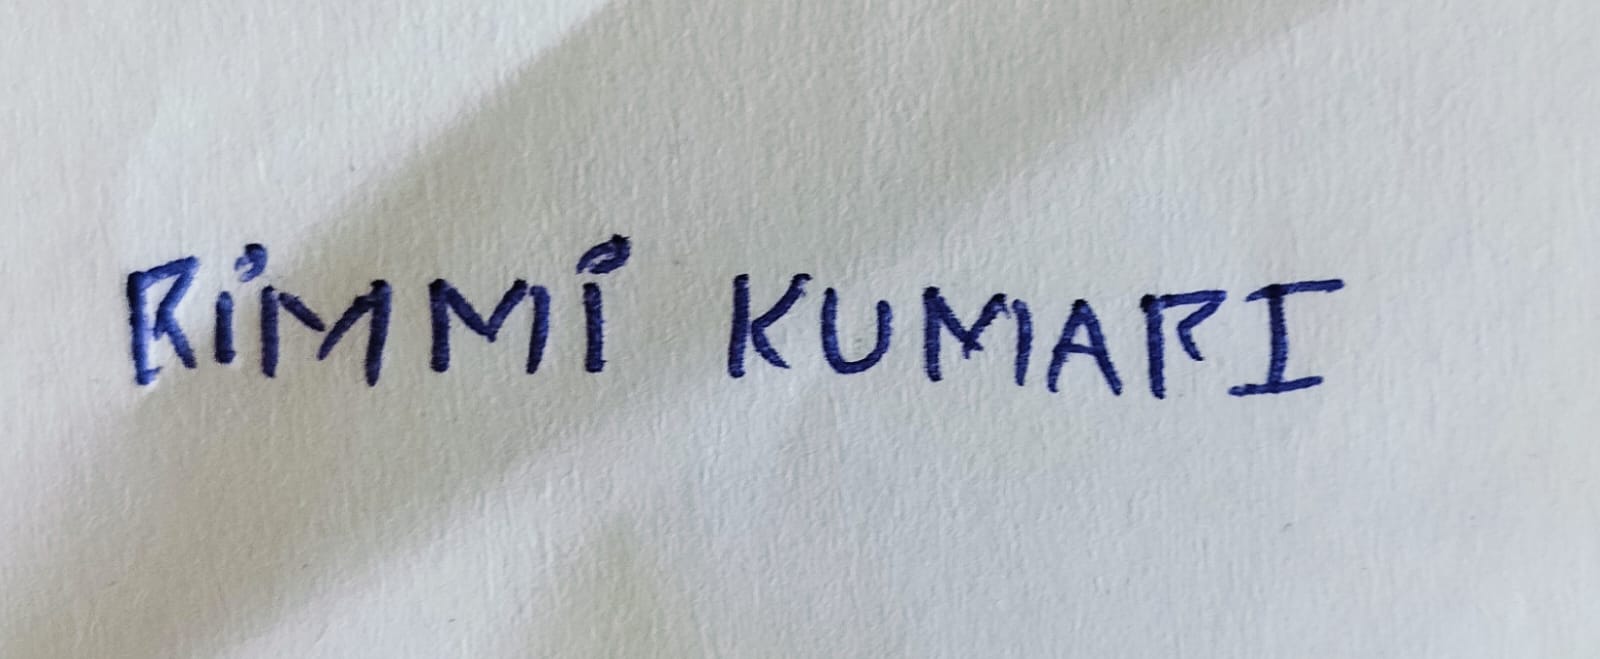 RiMMi KUMARI